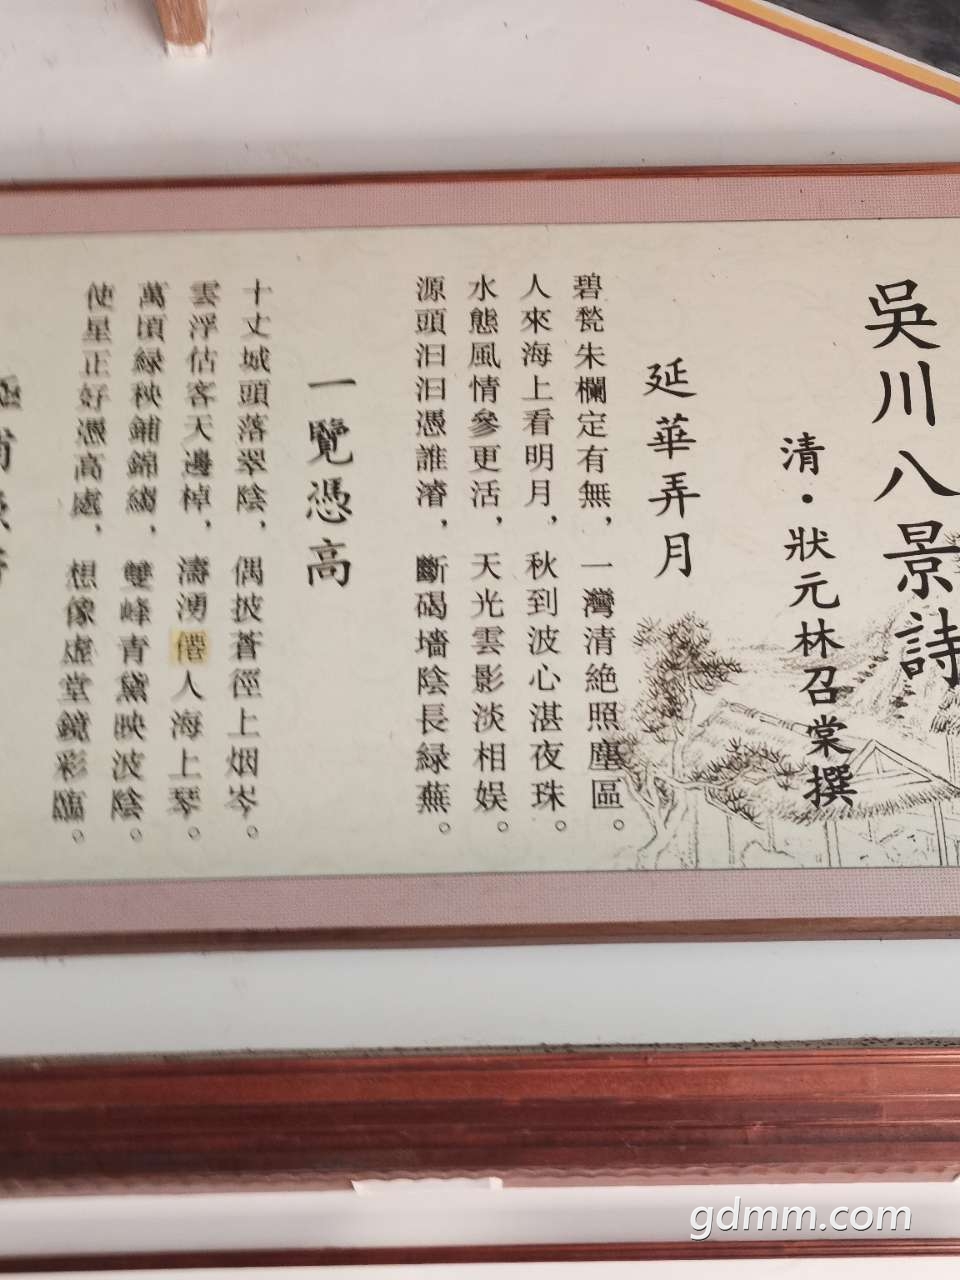 吳川八景詩
清·狀元林召棠撰
延華弄月
碧甃朱欄定有無，一灣清絶照塵區。
人來海上看明月，秋到波心湛夜珠。
水態風情參更活，天光雲影淡相娱。
源頭汩汩憑誰濬，斷碣墻陰長緑蕪。
一覽憑高
十丈城頭落翠陰，偶披蒼徑上烟岑。
雲浮估客天邊棹，濤湧僊人海上琴。
萬頃緑秧鋪錦縐，雙峰青黛映波陰。
使星正好憑高處，想像虚堂鏡彩臨。
gdmm.com